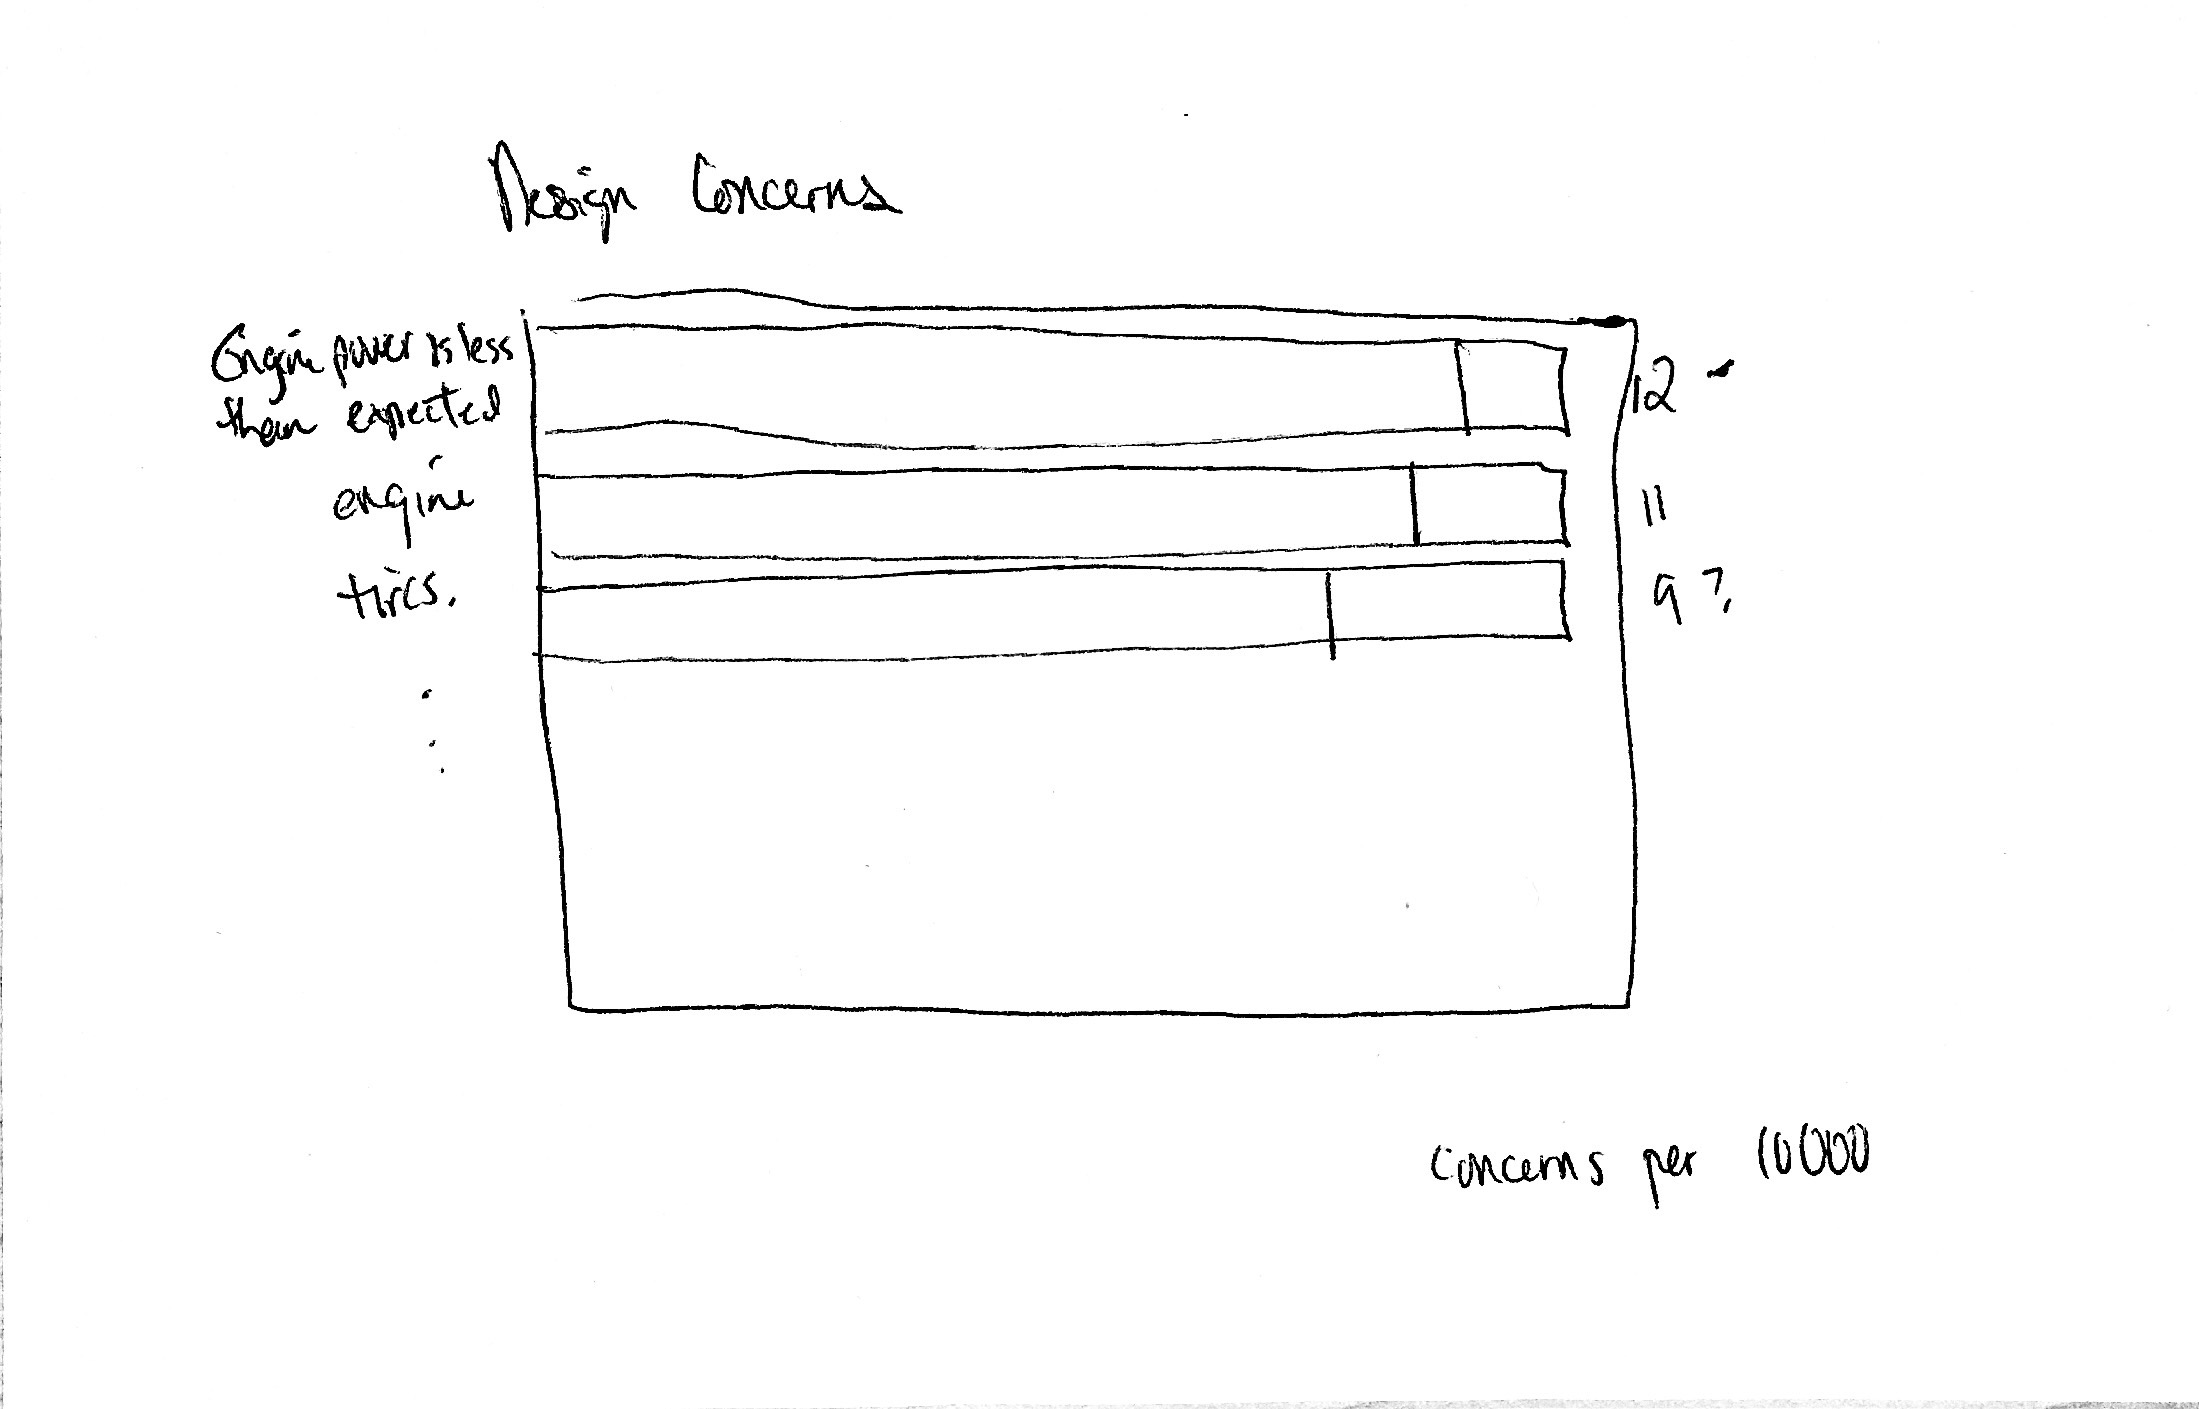 Design Concerns
Engine power is less
than expected
12 -
engine
11
tires.
9 ?
concerns per 10000